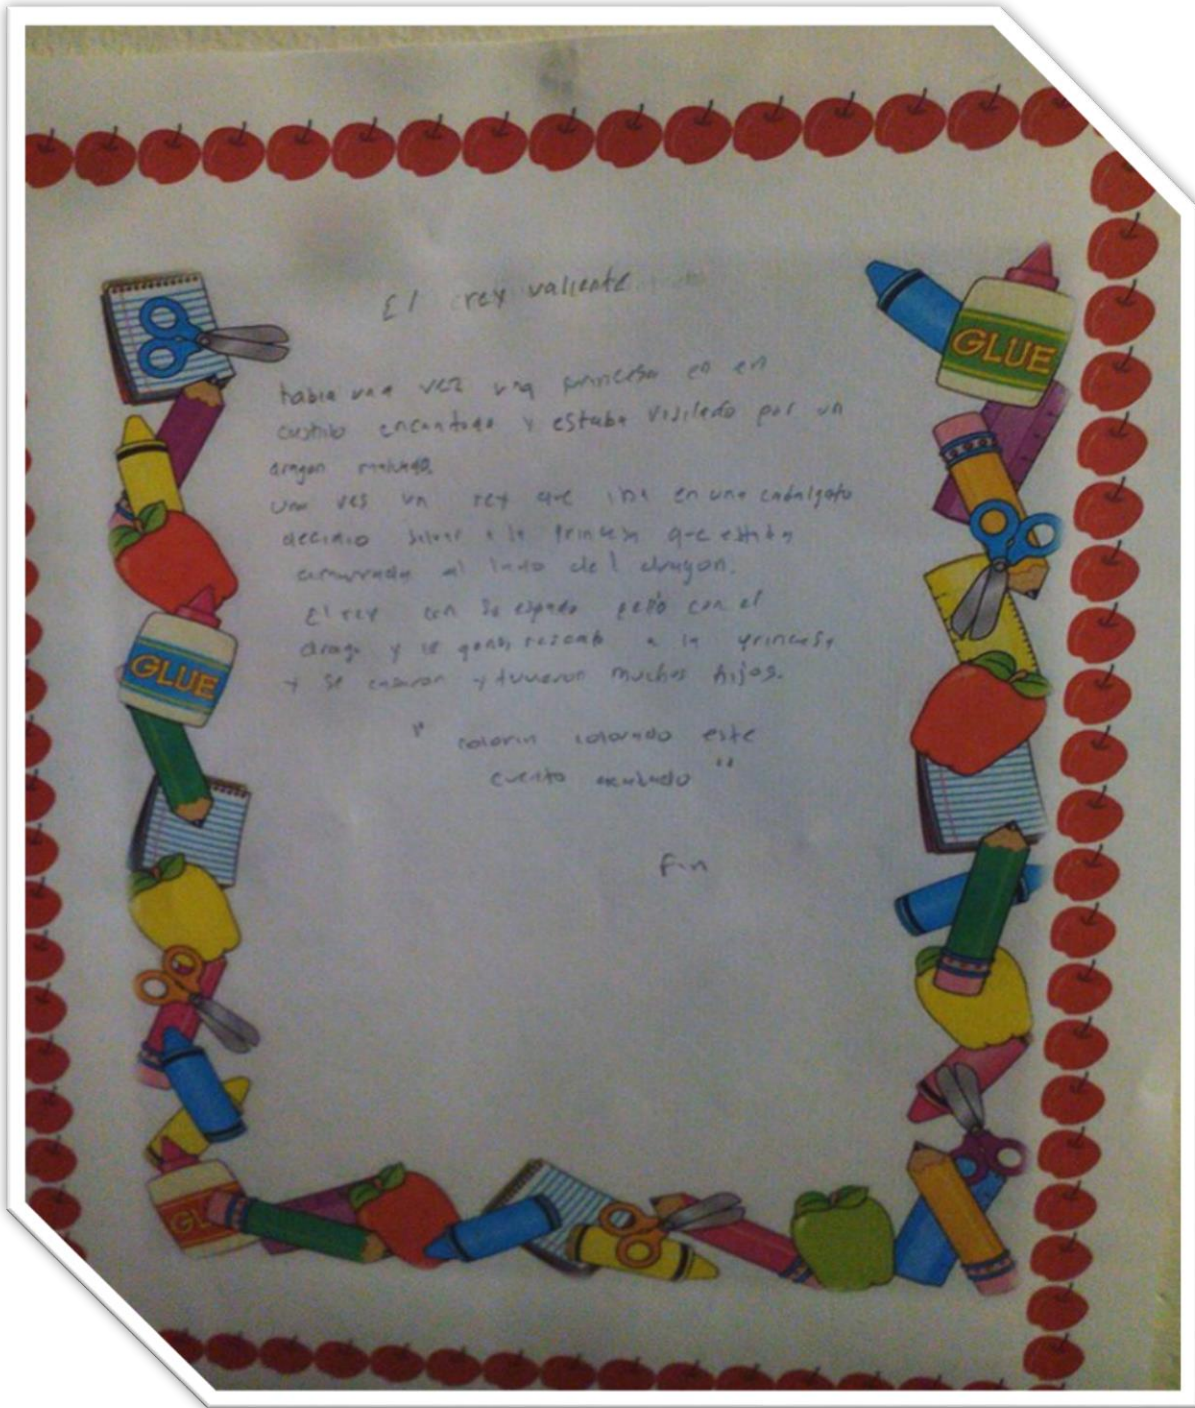 El rey valiente
habia una vez una princesa en en
castillo encantado y estaba vijilado por un
dragon malvado.
una ves un rey que iba en una cabalgata
decidio salvar a la princesa que estaba
amarrada al lado del dragon.
El rey con su espada peló con el
drago y le gano, rescato a la princesa
y se casaron y tuvieron muchos hijos.
" colorin colorado este
cuento acabado "
Fin
GLUE
GLUE
GL